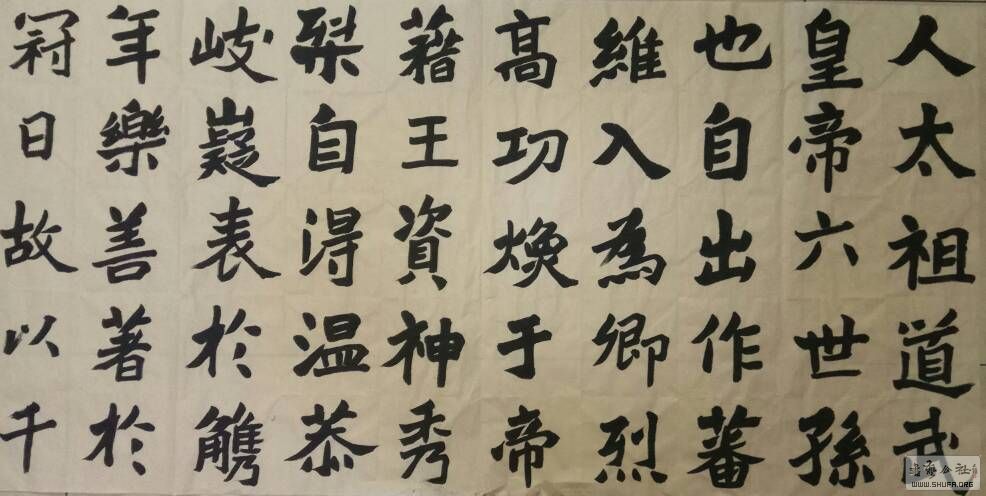 人太祖道武
皇帝六世孫
也自出作蕃
維入為卿烈
髙功煥于帝
藉王資神秀
自得温恭
岐嶷表於觿
年樂善著於
冠日故以千
書法公社
WWW.SHUFA.ORG